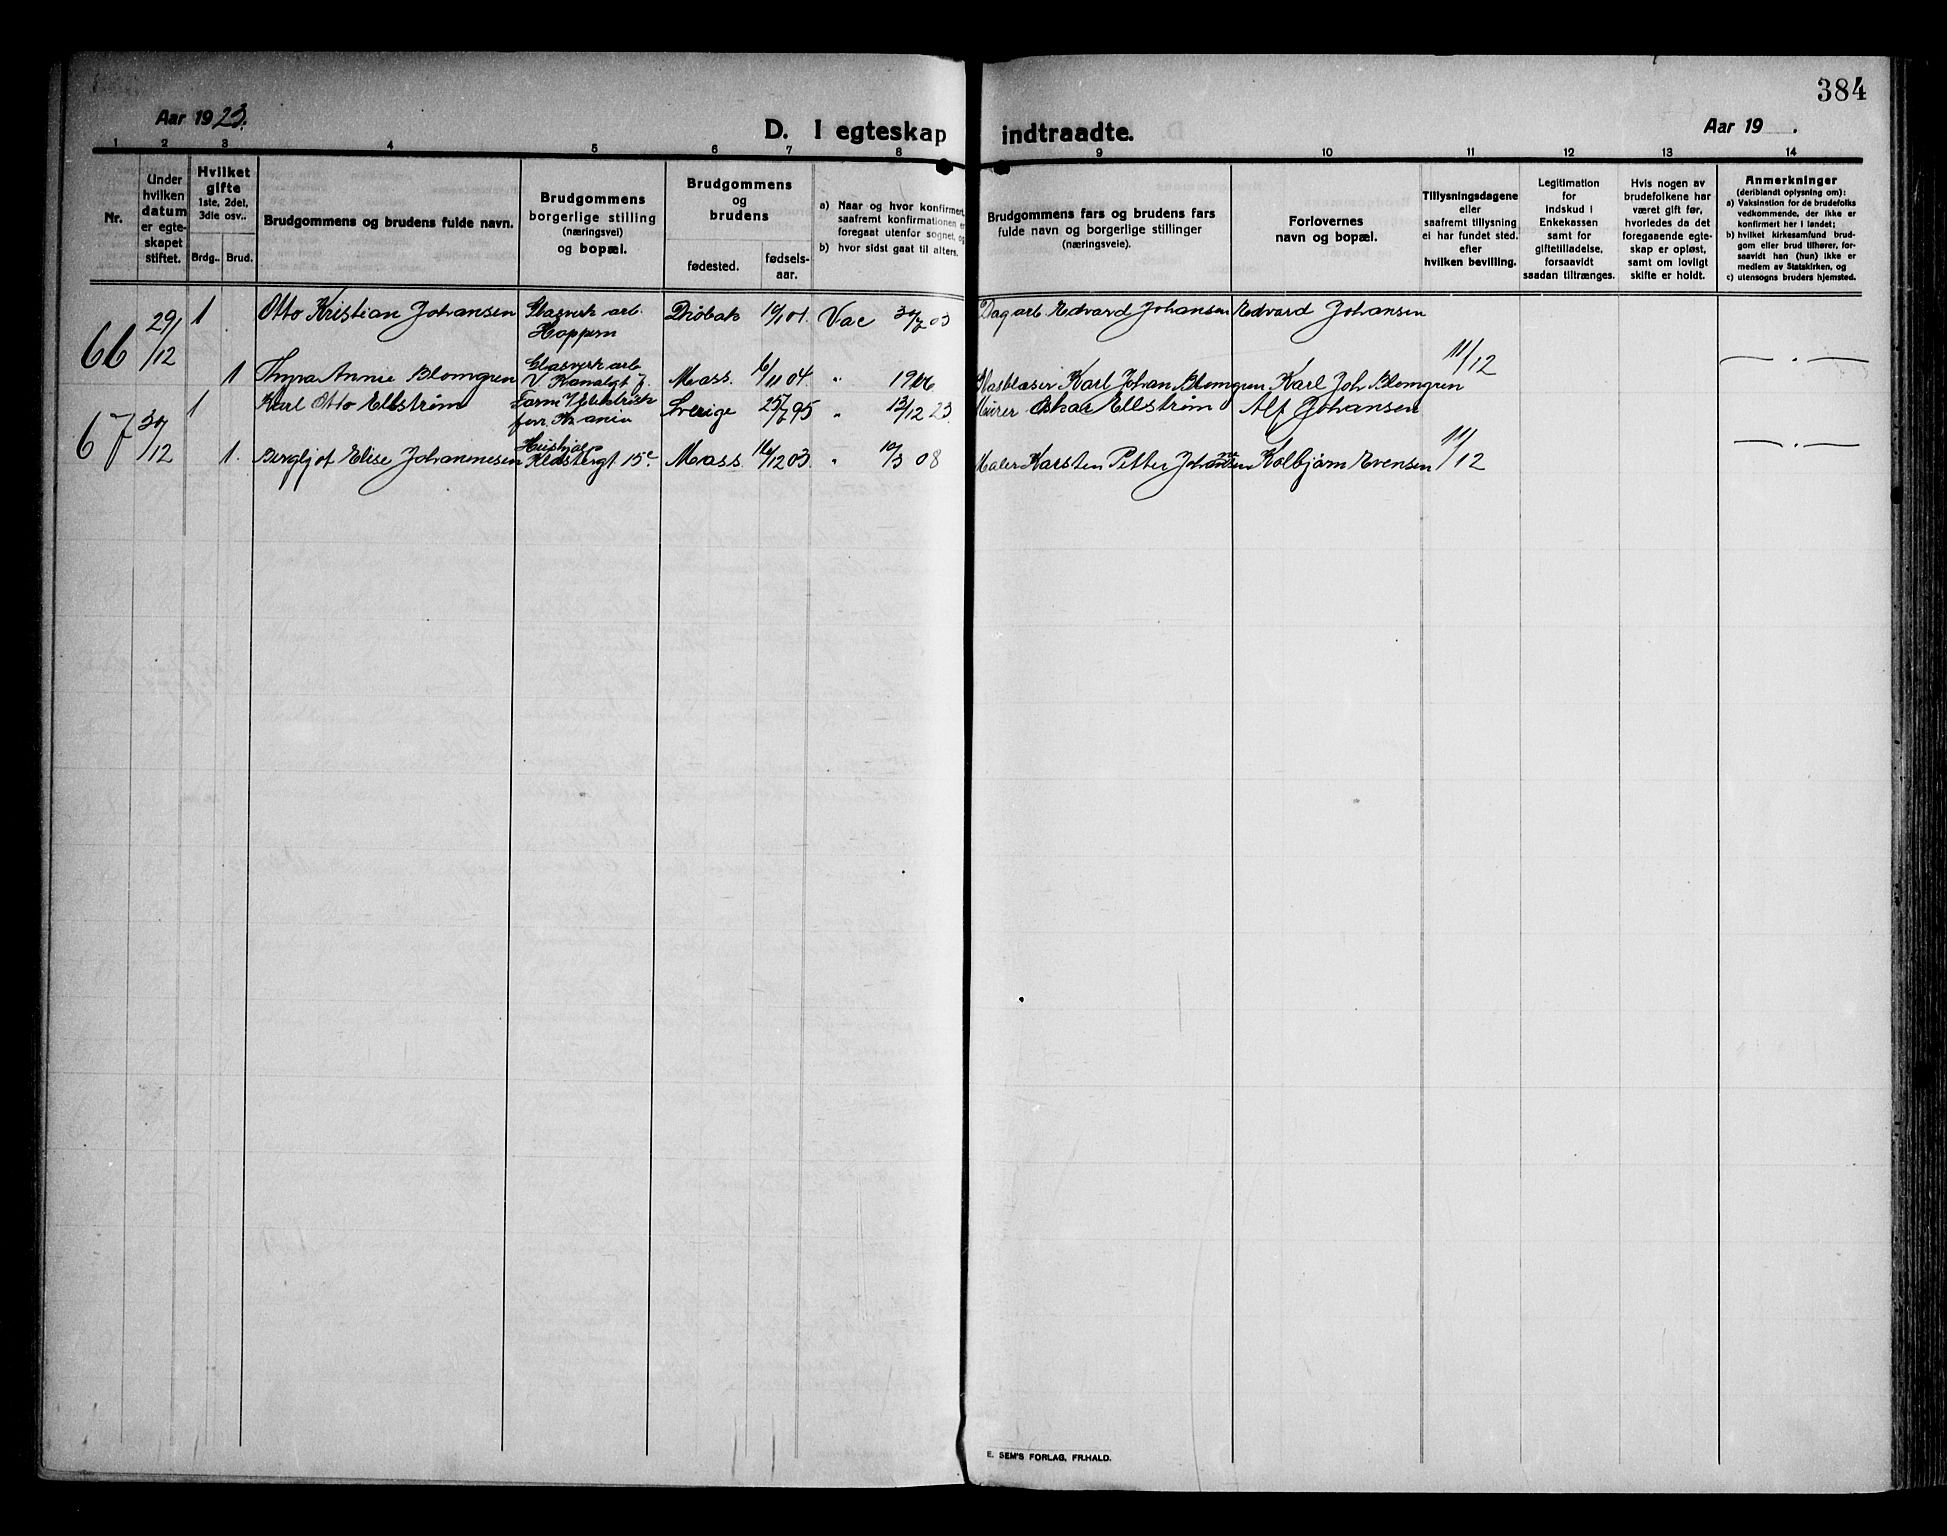 384
Aar 1923.
D. I egteskap indtraadte.
Aar 19 .
1 2 3 4 5 6 7 8 9 10 11 12 13 14
Nr.
Under
hvilken
datum
er egte-
skapet
stiftet.
Hvilket
gifte
1ste, 2det,
3die osv..
Brdg.. Brud.
Brudgommens og brudens fulde navn.
Brudgommens
borgerlige stilling
(næringsvei)
og bopæl.
Brudgommens
og
brudens
fødested.
fødsels-
aar.
a) Naar og hvor konfirmert,
saafremt konfirmationen er
foregaat utenfor sognet, og
b) hvor sidst gaat til alters.
Brudgommens fars og brudens fars
fulde navn og borgerlige stillinger
(næringsveie).
Forlovernes
navn og bopæl.
Tillysningsdagene
eller
saafremt tillysning
ei har fundet sted.
efter
hvilken bevilling.
Legitimation
for
indskud i
Enkekassen
samt for
giftetilladelse,
forsaavidt
saadan tiltrænges.
Hvis nogen av
brudefolkene har
været gift før,
hvorledes da det
foregaaende egte-
skap er opløst,
samt om lovligt
skifte er holdt.
Anmerkninger
(deriblandt oplysning om):
a) Vaksination for de brudefolks
vedkommende, der ikke er
konfirmert her i landet;
b) hvilket kirkesamfund brud-
gom eller brud tilhører, for-
saavidt han (hun) ikke er
medlem av Statskirken, og
c) utensogns bruders hjemsted.
66 29/12 1 Otto Kristian Johansen Glasverk arb. Drøbak 10/1 01 Vac 30/7 03 Dagarb Edvard Johansen Edvard Johansen
Hoppern
Glasverk arb
1 Thyra Annie Blomgren V. Kanalgt 7. Moss. 6/11 04 " 1906 Glasblæser Karl Johan Blomgren Karl Joh Blomgren 11/12 — " —
67 30/12 1 Karl Otto Ellstrøm Sverige 25/7 95 " 13/12 23 Murer Oskar Ellstrøm Alf Johansen
Kr.ania
Hushjælp
1. Bergljot Elise Johannesen 15c. Moss 16/12 03 " 10/3 08 Maler Karsten Petter Johannesen Kolbjørn Evensen 11/12 — " —
E. SEM'S FORLAG, FR.HALD.